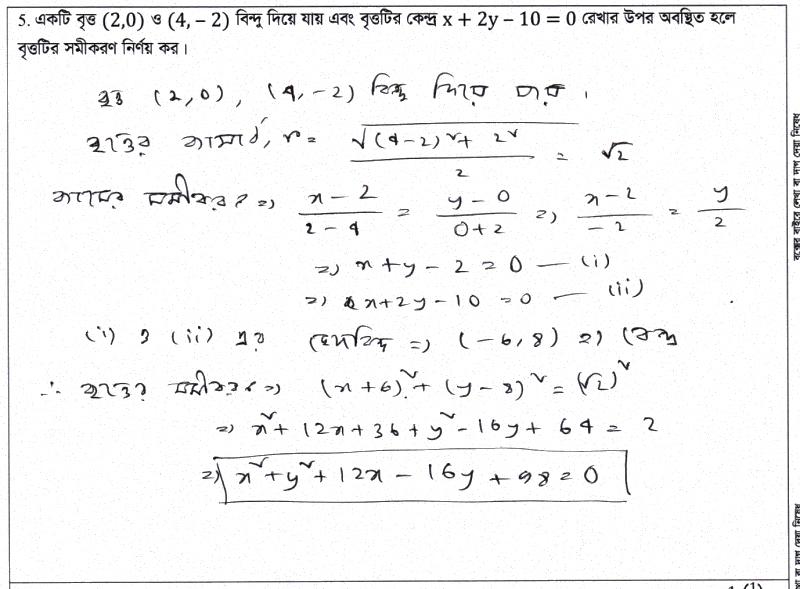 5. একটি বৃত্ত (2,0) ও (4, – 2) বিন্দু দিয়ে যায় এবং বৃত্তটির কেন্দ্র x + 2y – 10 = 0 রেখার উপর অবস্থিত হলে
বৃত্তটির সমীকরণ নির্ণয় কর।
বৃত্ত (2,0), (4, -2) বিন্দু দিয়ে যায়।
বৃত্তের ব্যাসার্ধ, r = √((4-2)² + 2²) / 2 = √2
ব্যাসের সমীকরণ => (x-2)/(2-4) = (y-0)/(0+2) => (x-2)/(-2) = y/2
=> x+y-2=0 — (i)
=> x+2y-10=0 — (ii)
(i) ও (ii) এর ছেদবিন্দু => (-6,8) => কেন্দ্র
∴ বৃত্তের সমীকরণ => (x+6)² + (y-8)² = (√2)²
=> x² + 12x + 36 + y² - 16y + 64 = 2
=> x² + y² + 12x - 16y + 98 = 0